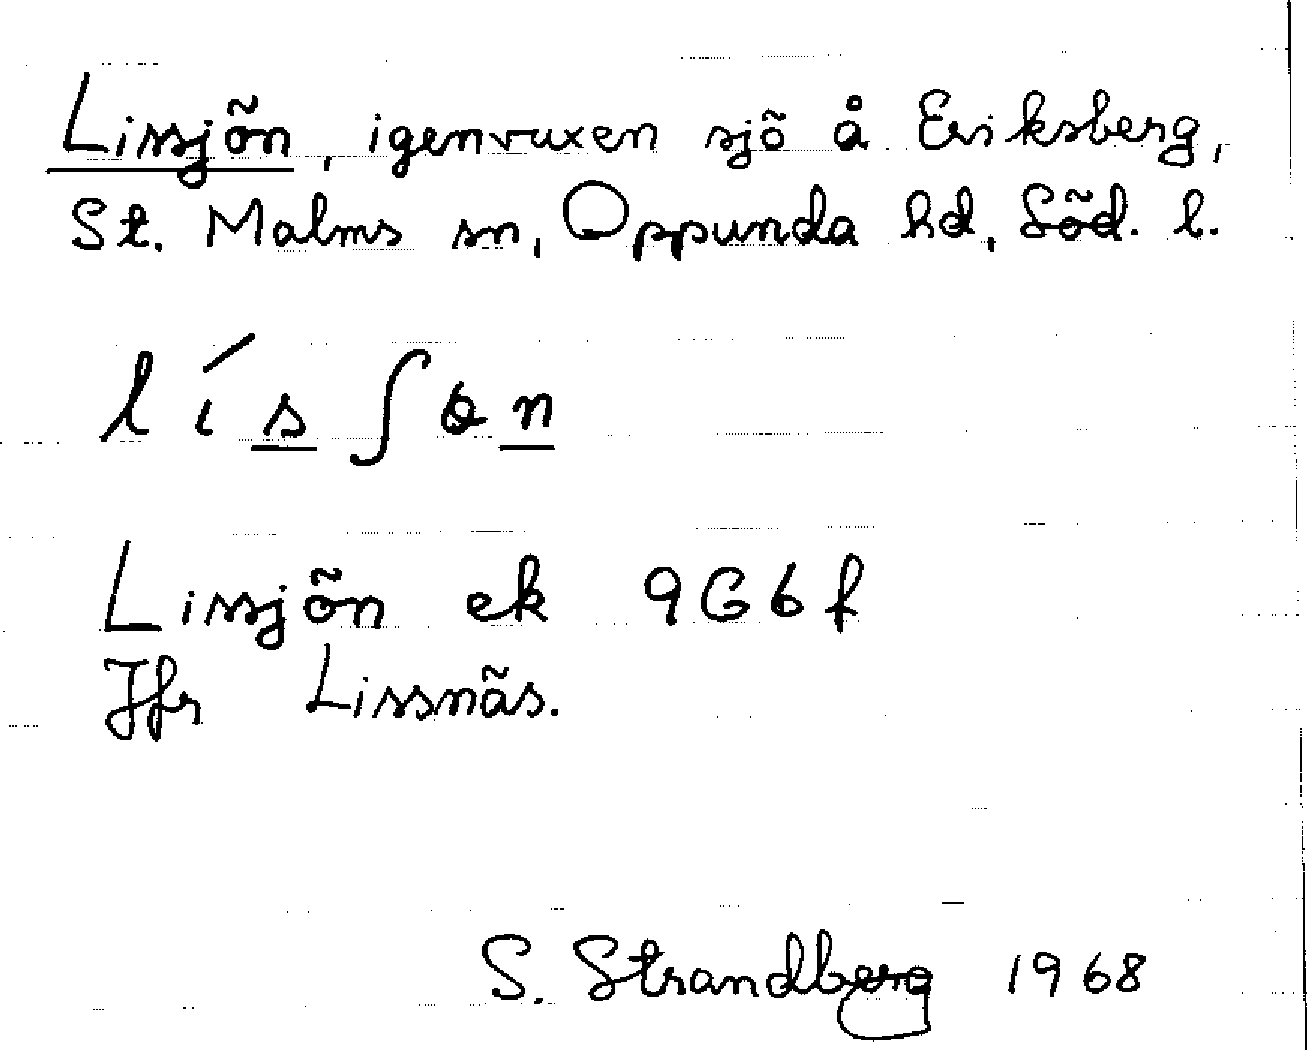 Lissjön, igenvuxen sjö å Eriksberg,
St. Malms sn, Oppunda hd, Söd. l.
lísʃɵn
Lissjön ek 9G6f
Jfr Lissnäs.
S. Strandberg 1968